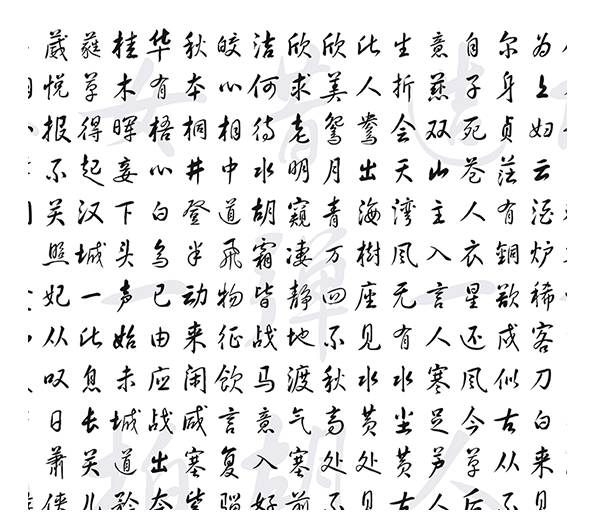 葳蕤桂华秋皎洁欣欣此生意自尔为
悦草木有本心何求美人折慈子身上
报得晖梧桐相待老鸳鸯会双死贞妇
不起妾心井中水明月出天山苍茫云
关汉下白登道胡窥青海湾主人有酒
照城头乌半飞霜凄万樹风入衣銅炉
妃一声已动物皆静四座无言星欲稀
从此始由来征战地不见有人还戍客
叹息未应闲饮马渡秋水水寒风似刀
日长城战咸言意气高黄尘足今古白
萧关道出塞复入塞处处黄芦草从来
侠儿矜夸紫骝好前不见古人后不见